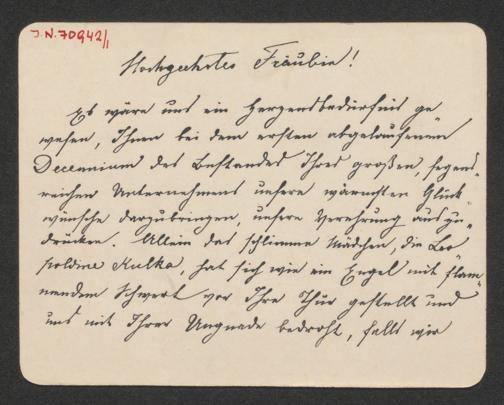 J.N. 70942/1
Hochgeehrtes Fräulein!
Es wäre uns ein Herzensbedürfnis ge
wesen, Ihnen bei dem ersten abgelaufenen
Decennium des Bestandes Ihres großen, segens-
reichen Unternehmens unsere wärmsten Glück-
wünsche darzubringen, unsere Verehrung auszu-
drücken. Allein das schlimme Mädchen, die Leo
poldine Kulka, hat sich wie ein Engel mit flam-
mendem Schwert vor Ihre Thür gestellt und
uns mit Ihrer Ungnade bedroht, falls wir